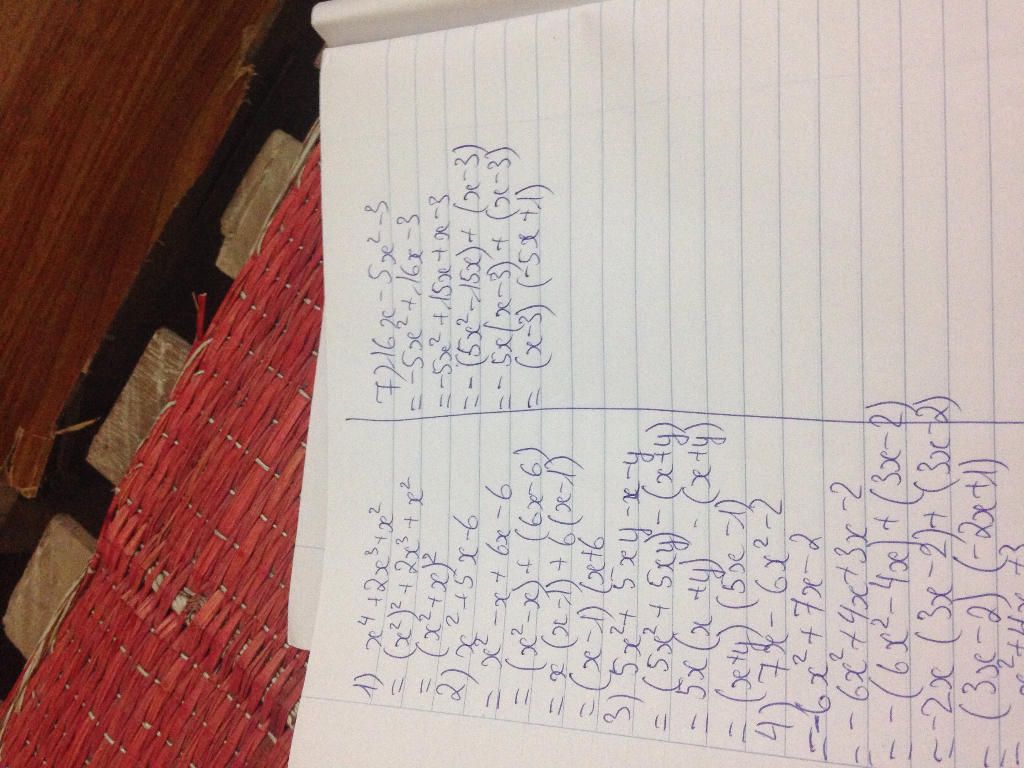 1) x⁴ + 2x³ + x²
= (x²)² + 2x³ + x²
= (x² + x)²
2) x² + 5x - 6
= x² - x + 6x - 6
= (x² - x) + (6x - 6)
= x (x - 1) + 6 (x - 1)
= (x - 1) (x + 6
3) 5x² + 5xy - x - y
= (5x² + 5xy) - (x + y)
= 5x (x + y) - (x + y)
= (x + y) (5x - 1)
4) 7x - 6x² - 2
= -6x² + 7x - 2
= -6x² + 4x + 3x - 2
= -(6x² - 4x) + (3x - 2)
= -2x (3x - 2) + (3x - 2)
= (3x - 2) (-2x + 1)
7) 16x - 5x² - 3
= -5x² + 16x - 3
= -5x² + 15x + x - 3
= -(5x² - 15x) + (x - 3)
= -5x (x - 3) + (x - 3)
= (x - 3) (-5x + 1)